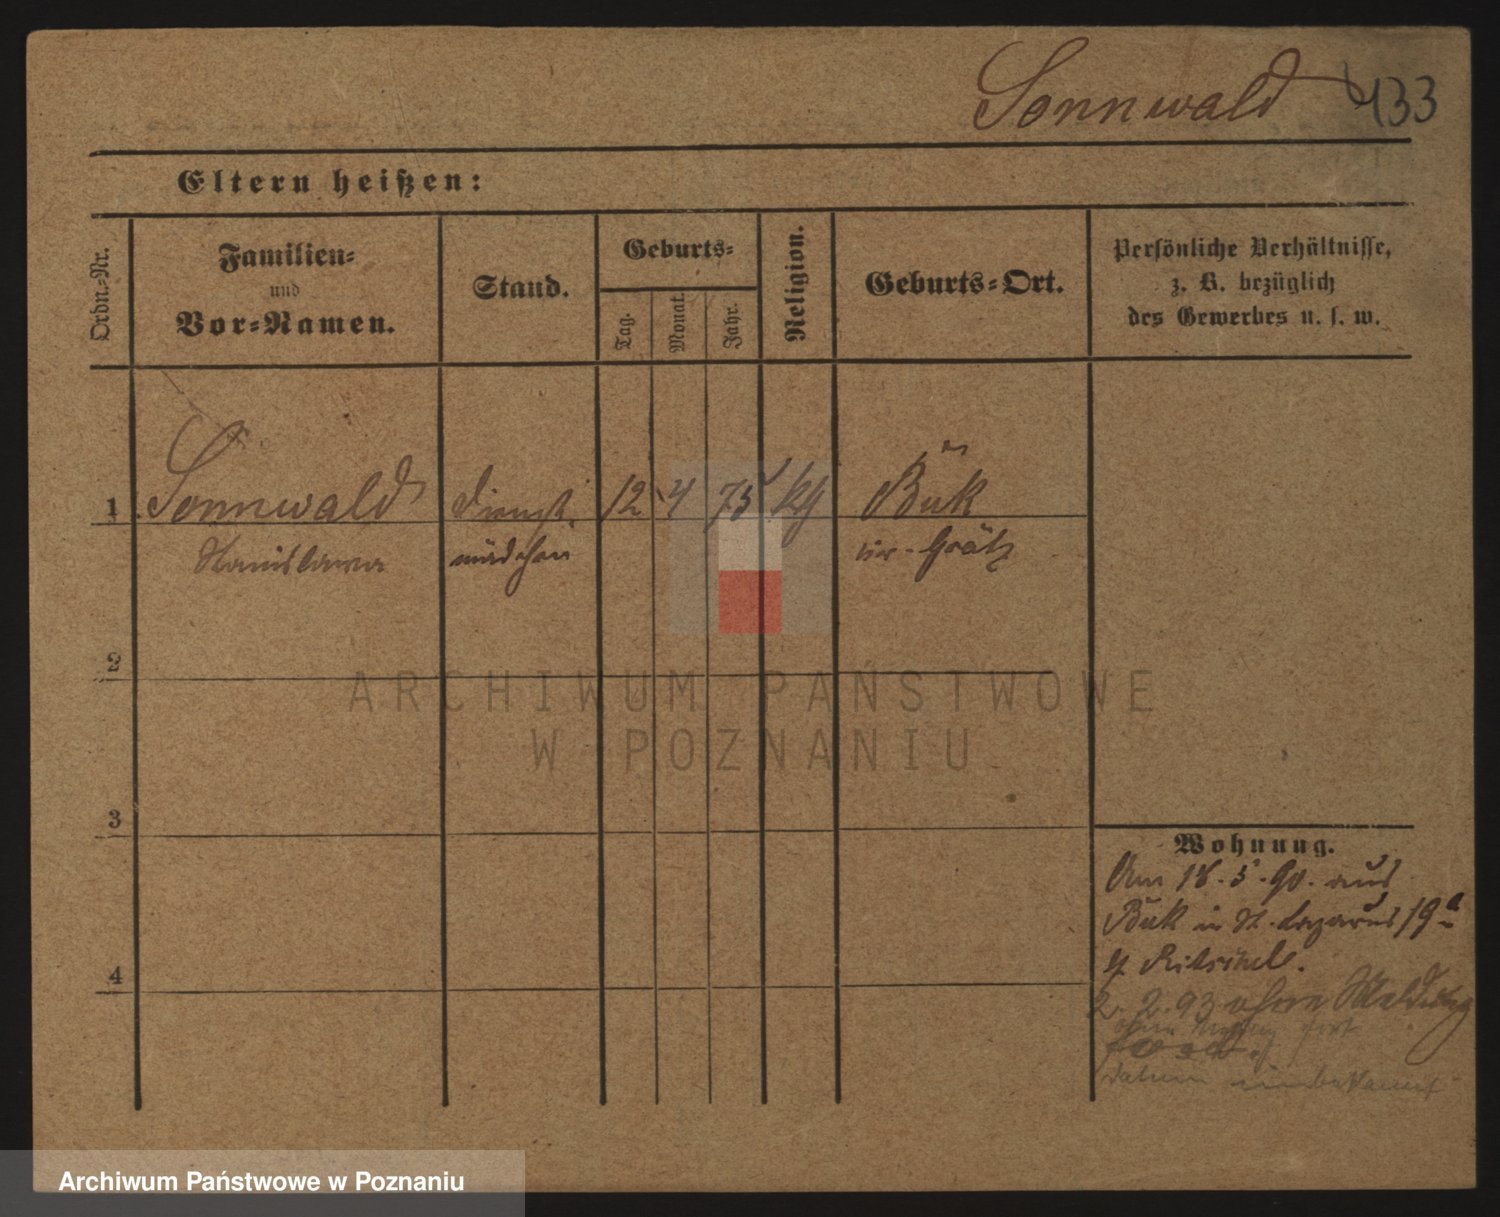 Sonnwald 433
Eltern heißen:
Ordn.-Nr.
Familien-
und
Vor-Namen.
Stand.
Geburts-
Tag.
Monat.
Jahr.
Religion.
Geburts-Ort.
Persönliche Verhältnisse,
z. B. bezüglich
des Gewerbes u. s. w.
1 Sonnwald Dienst- 12 4 75 kth Buk
Stanislawa mädchen Kr. Grätz
2
3
4
Wohnung.
Am 18. 5. 90. aus
Buk in St. Lazarus 19a
2. 2. 93 ohne Meldung
fort
Datum unbekannt
ARCHIWUM PAŃSTWOWE
W POZNANIU
Archiwum Państwowe w Poznaniu